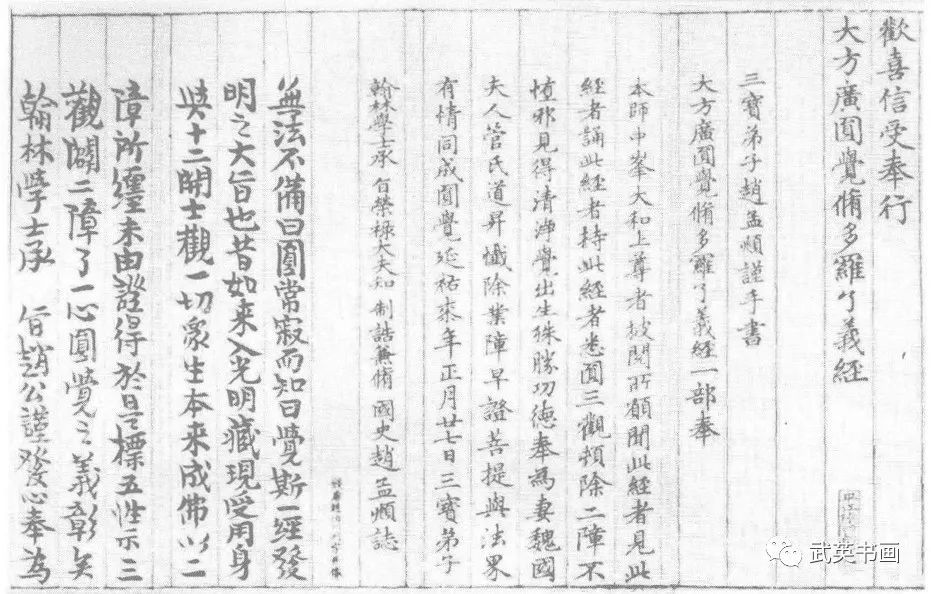 歡喜信受奉行
大方廣圓覺脩多羅了義經
三寶弟子趙孟頫謹手書
大方廣圓覺脩多羅了義經一部奉
本師中峯大和上尊者披閱所願聞此經者見此
經者誦此經者持此經者悉圓三觀頓除二障不
墮邪見得清淨覺出生殊勝功德奉為妻魏國
夫人管氏道昇懺除業障早證菩提與法界
有情同成圓覺延祐柒年正月廿七日三寶弟子
翰林學士承 旨榮祿大夫知 制誥兼脩 國史趙孟頫誌
無法不備曰圓常寂而知曰覺斯一經發
明之大旨也昔如来入光明藏現受用身
與十二開士觀一切眾生本来成佛以二
障所纏未由證得於是標五性示三
觀闢二障了一心圓覺之義彰矣
翰林學士承 旨趙公謹發心奉為
武英书画